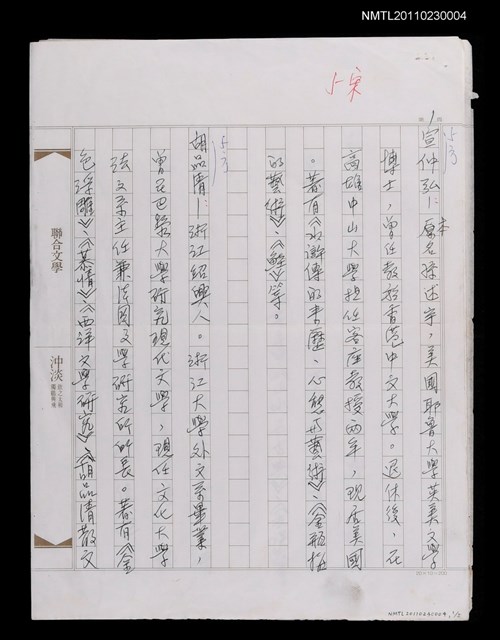 NMTL20110230004
上宋
宣仲弘:本名孫述宇,美國耶魯大學英美文學
博士,曾任教於香港中文大學。退休後,在
高雄中山大學担任客座教授兩年,現居美國
。著有《水滸傳的來歷、心態與藝術》、《金瓶梅
的藝術》、《鮮》等。
胡品清:浙江紹興人。浙江大學外文系畢業,
曾在巴黎大學研究現代文學,現任文化大學
法文系主任兼法國文學研究所所長。著有《金
色浮雕》、《慕情》《西洋文學研究》、《胡品清散文
聯合文學
NMTL20110230004, 1/2